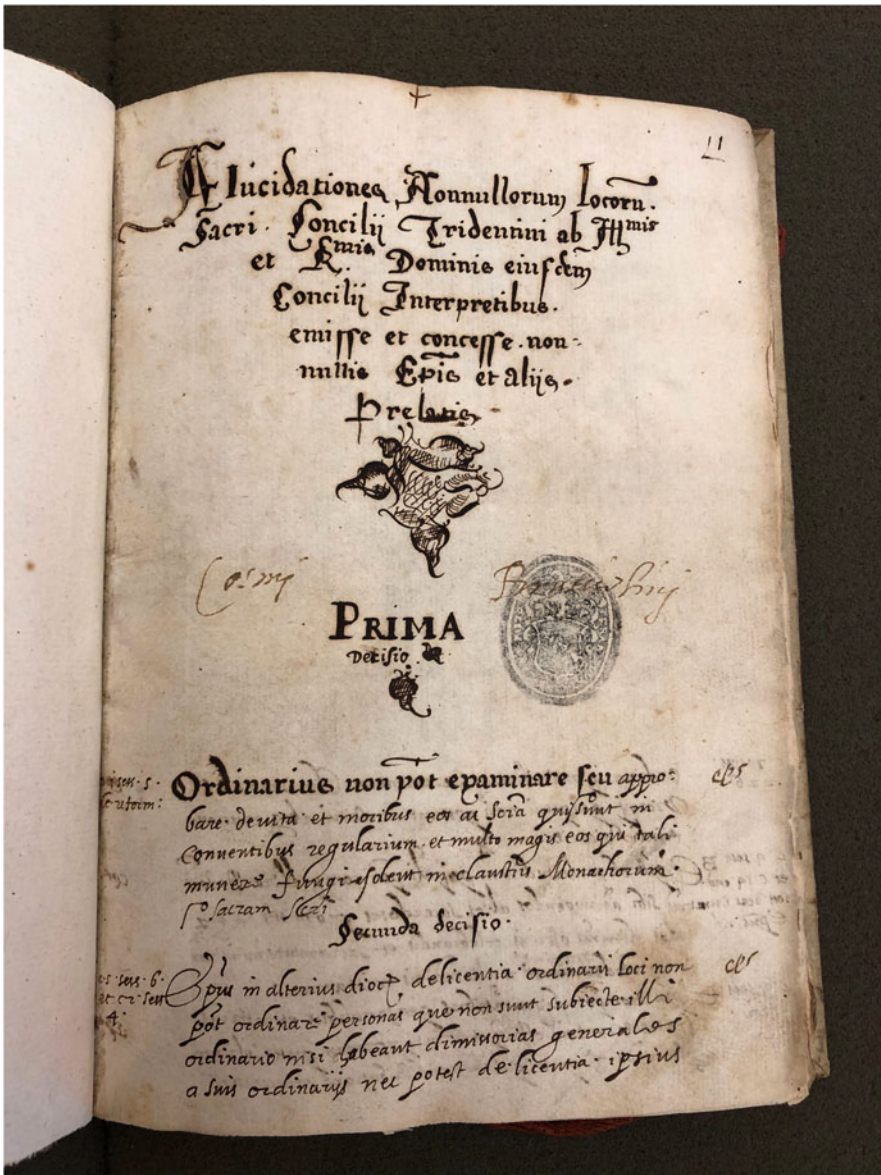 11
Elucidationes Nonnullorum locorũ.
Sacri. Concilij Tridentini ab Ill^mis
et R.^mis Dominis eiusdem
Concilij Interpretibus.
emisse et concesse. non-
nullis Ep̃is et alijs.
Prelatis
Cosmi
PRIMA
Decisio.
Ordinarius non põt examinare seu appro:
bare de vita et moribus eos ac sciã qui sunt in
Conventibus regularium et multo magis eos qui tali
munere fungi solent in claustris Monachorum.
sacram
Secunda decisio.
in alterius dioc de licentia ordinarii loci non
põt ordinare personas que non sunt subiecte illi
ordinario nisi habeant dimissorias generales
a suis ordinarijs nec potest de licentia ipsius